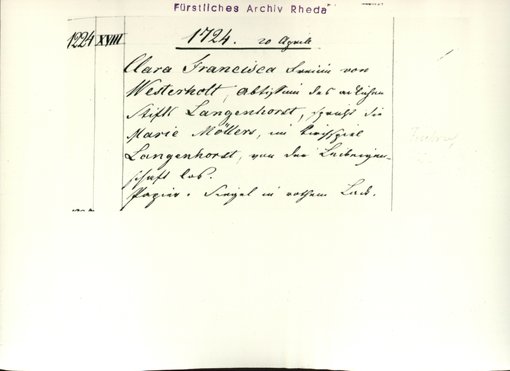 Fürstliches Archiv Rheda
1224 XVIII 1724. 20 Aprils
Clara Francisca Freiin von
Westerholt, Abtissin des adlichen
Stifts Langenhorst, spricht die
Marie Möllers, im Kirchspiel
Langenhorst, von der Leibeigen-
schaft los.
Papier. Siegel in rothem Lack.